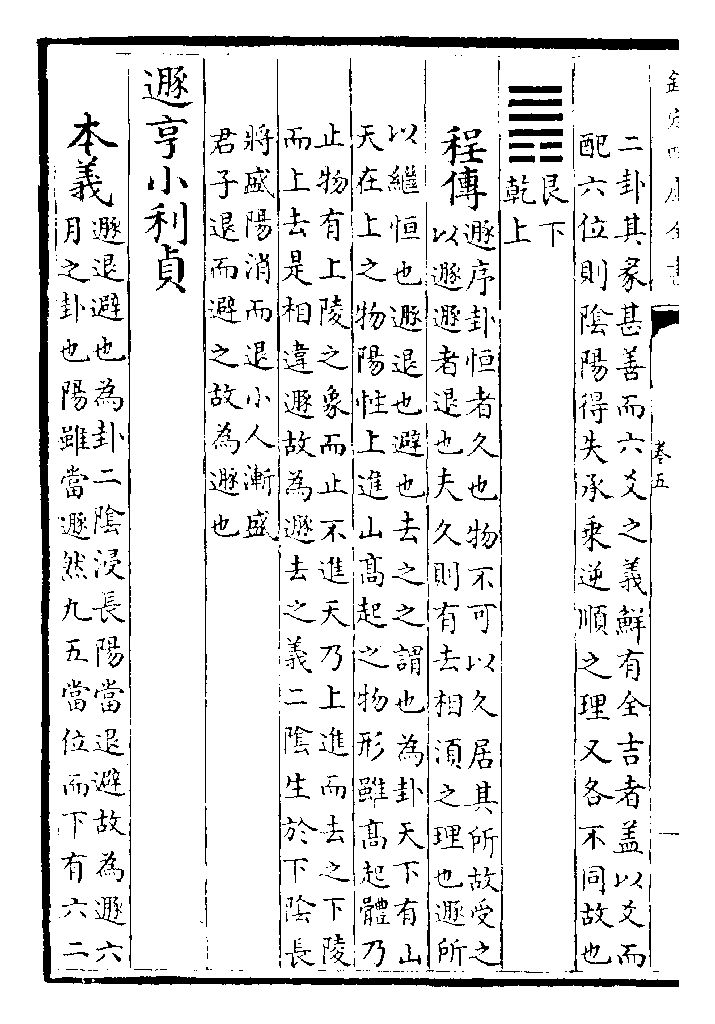 欽定四庫全書
卷五
二卦其彖甚善而六爻之義鮮有全吉者盖以爻而
配六位則陰陽得失承乗逆順之理又各不同故也
䷠
艮下
乾上
程傳
遯序卦恒者久也物不可以久居其所故受之
以遯遯者退也夫久則有去相湏之理也遯所
以繼恒也遯退也避也去之之謂也為卦天下有山
天在上之物陽性上進山髙起之物形雖髙起體乃
止物有上陵之象而止不進天乃上進而去之下陵
而上去是相違遯故為遯去之義二陰生於下陰長
將盛陽消而退小人漸盛
君子退而避之故為遯也
遯亨小利貞
本義
遯退避也為卦二陰浸長陽當退避故為遯六
月之卦也陽雖當遯然九五當位而下有六二